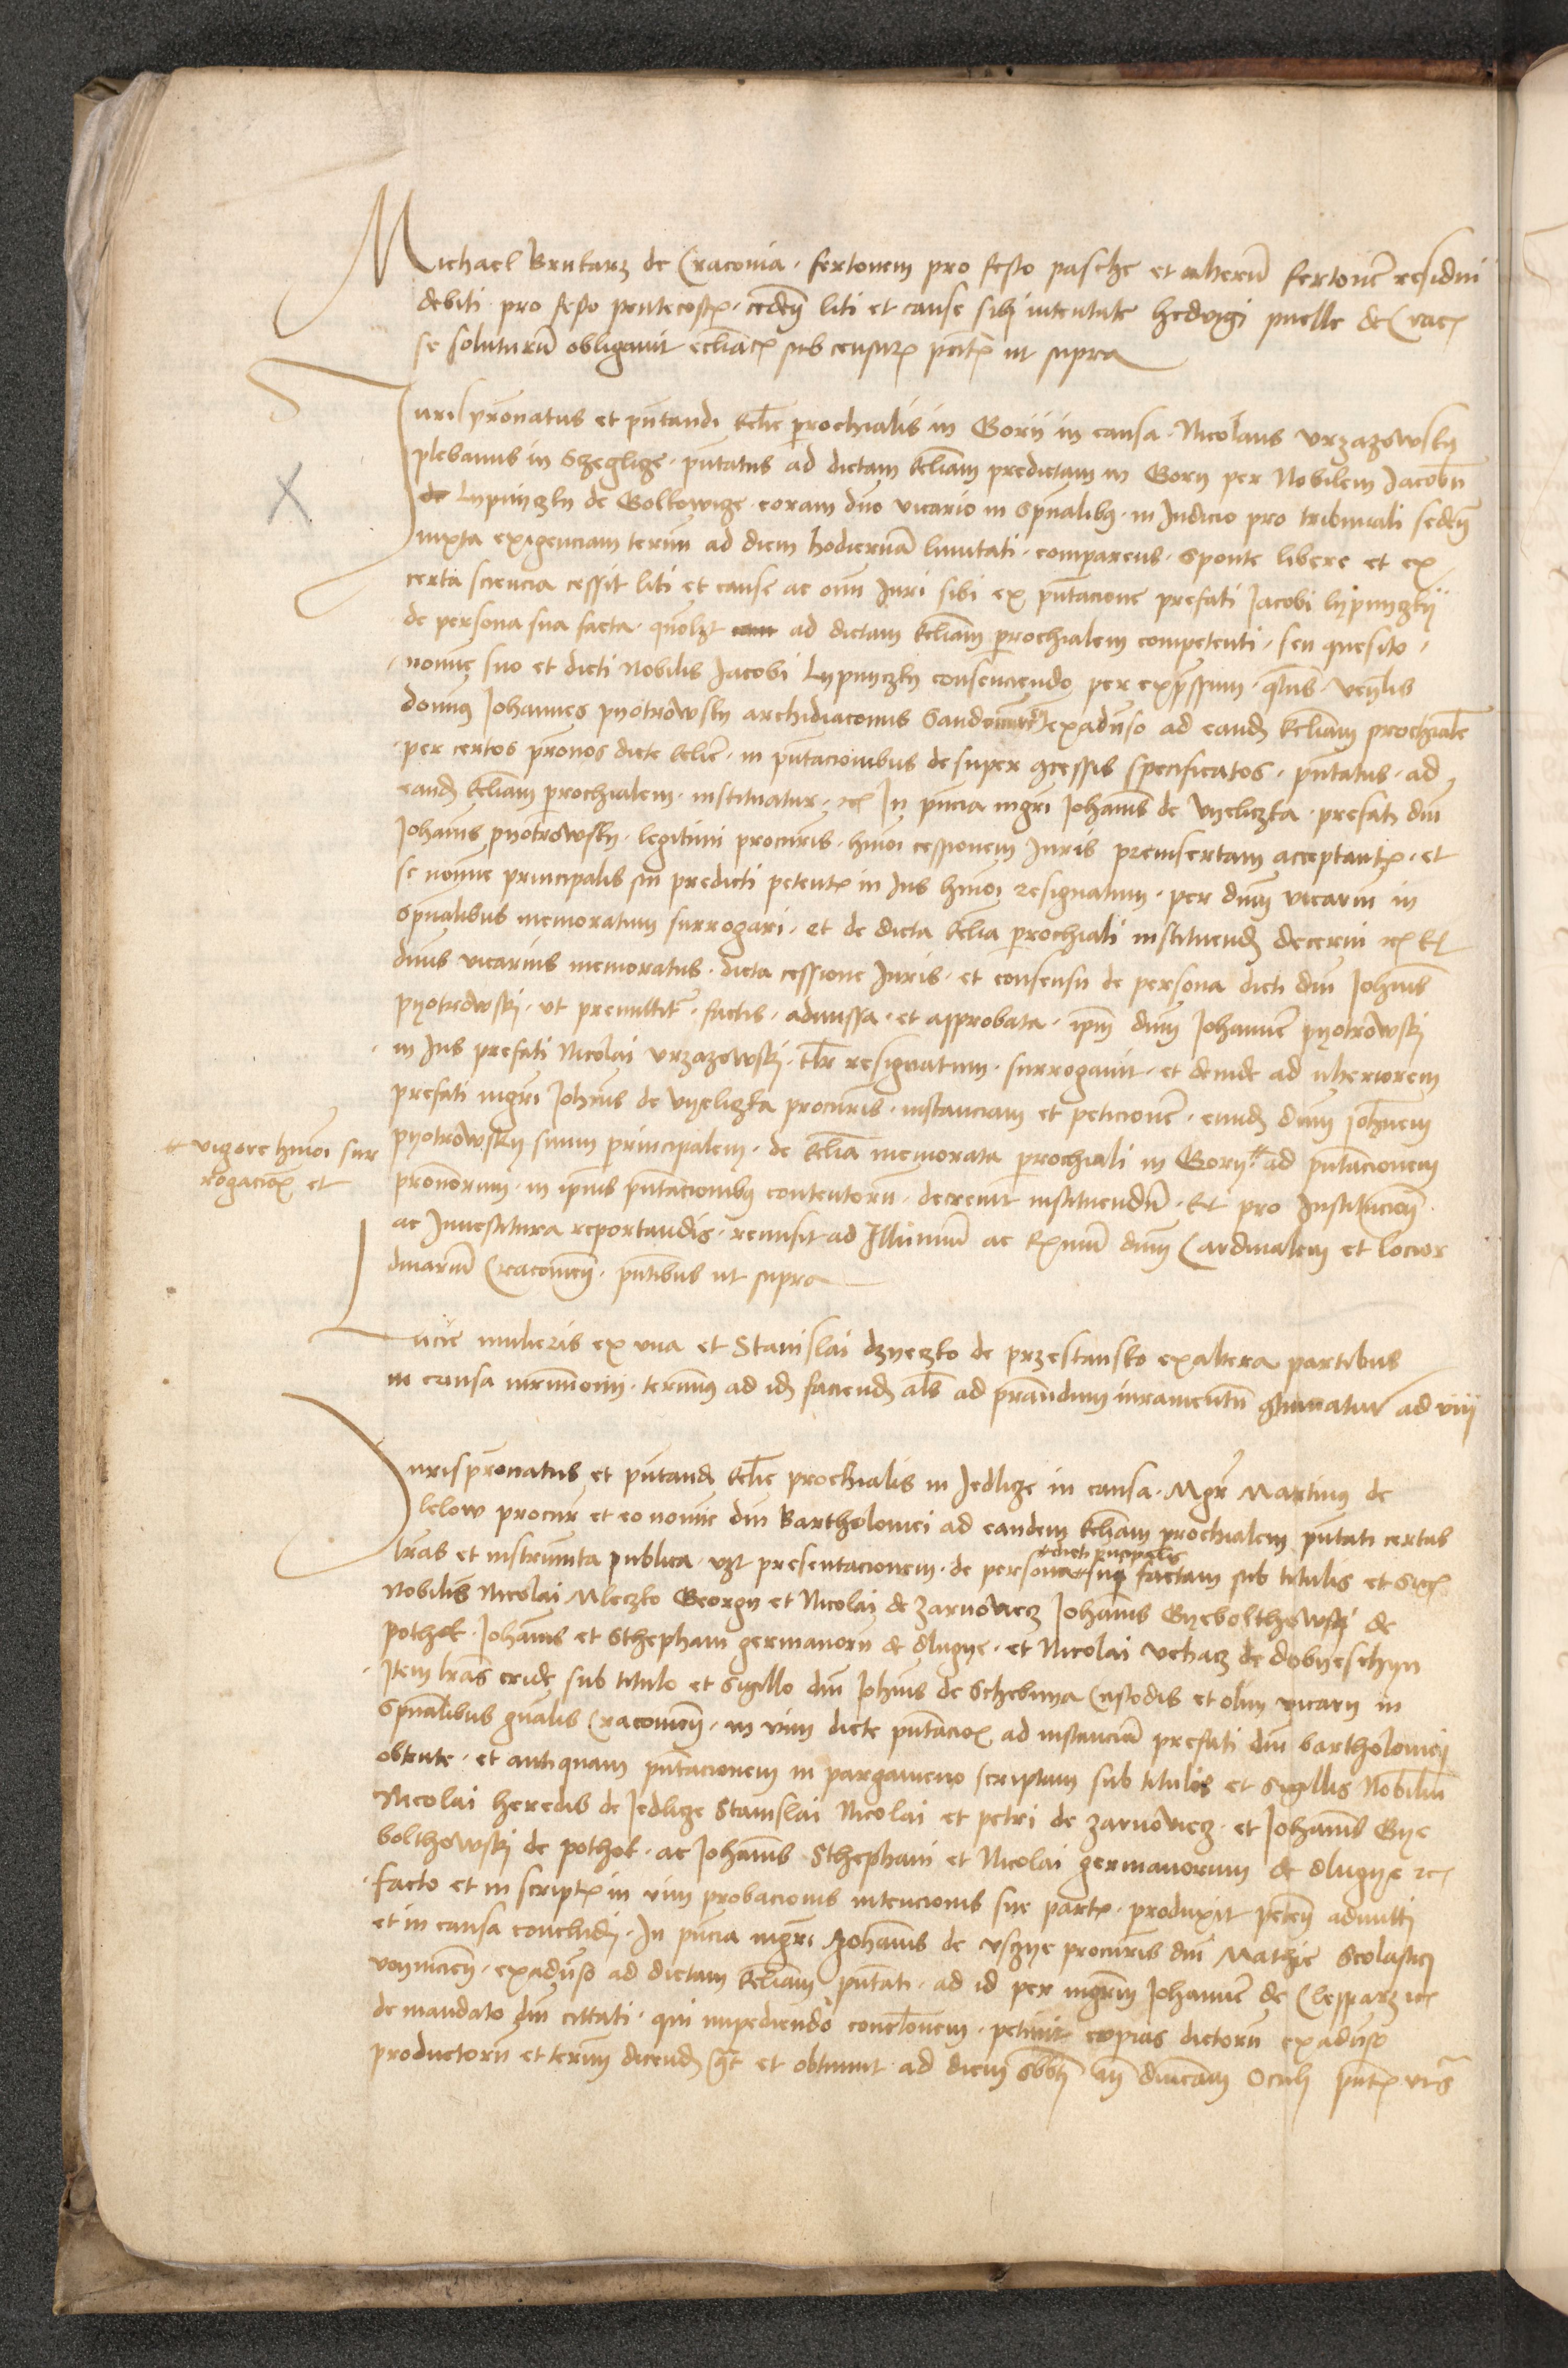 Michael Brukarz de Cracovia fertonem pro festo pasche et alterū fertonē residui
debiti pro festo pentecost cedēn liti et cause sibi intentate hedvigi puelle de Crac
se soluturū obligavit ecliāc sub censur pntꝫ ut supra
Juris pronatus et pntandi eclie prochialis in Gorii in causa Nicolaus vrzazowsky
plebanus in Szeglicze pntatus ad dictam ecliam predictam in Gory per Nobilem Jacobū
de Lypnyczky de Golkowicze coram dno vicario in spualibus in Iudicio pro tribunali sedēn
iuxta exigenciam termi ad diem hodiernā limitati comparens sponte libere et ex
certa sciencia cessit liti et cause ac omni Iuri sibi ex pntacione prefati Jacobi lypnyczkij
de persona sua facta quolzt ad dictam ecliam prochialem competenti seu quesito
nomine suo et dicti nobilis Jacobi Lypnyczky consenciendo per expssum qtus venlis
domnus Johannes pyotrowsky archidiaconus Sandomirien exaduso ad eandē ecliam prochialē
per certos pronos dicte eclie in pntacionibus desuper cessis specificatos pntatus ad
eandē ecliam prochialem instituatur rc In pncia mgri Johanis de Vyeliczka prefati dni
Johanis pyotrowsky legitimi procuris hmoi cessionem Iuris preinsertam acceptantꝫ et
se nomine principalis sui predicti petentꝫ in Ius hmoi resignatum per dnum vicariū in
spualibus memoratum surrogari et de dicta eclia prochiali instituendū decerni rc Et
dnus vicarius memoratus dicta cessione Iuris et consensu de persona dicti dni Johānis
pyotrowskj ut premittitr factis admissa et approbata ipm dnum Johannē pyotrowskj
in Ius prefati Nicolai vrzazowskj tlr resignatum surrogavit et deinde ad uberiorem
prefati mgri Johanis de Vyeliczka procuris instanciam et peticionē eundē dnum Johānem
pyotrowsky suum principalem de eclia memorata prochiali in Gory # ad pntacionem
# vigore hmoi sur
rogacioꝫ et
pronorum in ipsius pntacionibus contentorū decrevit instituendū Et pro Institucioē
ac Investitura reportandis remisit ad Illmum ac Rmum dnum Cardinalem et locior
dinariū Cracovien pntibus ut supra
Lucie mulieris ex una et Stanislai dzyeczko de przestansko exaltera partibus
in causa mrimonij terminus ad id faciend als ad prandum iuramentū ctinuatur ad viij
Jurispronatus et pntandi eclie prochialis in Jedlcze in causa Mgr Martinus de
lelow procur et eo nomine dni Bartholomei ad eandem ecliam prochialem pntati certas
lras et instrumta publica vzt presentacionem de persona # dicti pncipalis sui factam sub titulis et sig
Nobilis Nicolai Mleczko Georgy et Nicolai de zarnowiecz Johanis Gyebolthowskj de
pothok Johanis et Sthephani germanorū de dlugye et Nicolai vchacz de dobyeschyn
Item lras cride sub titulo et sigillo dni Johānis de Schebnya Custodis et olim vicary in
spualibus gnalis Cracovien in vim dicte pntacioꝫ ad instanciā prefati dni bartholomei
obtente et antiquam pntacionem in pargameno scriptam sub titulis et sigillis Nobiliū
Nicolai heredis de Jedlcze Stanislai Nicolai et petri de zarnowiecz et Johanis Gye
bolthowskj de pothok ac Johanis Sthephani et Nicolai germanorum de dlugye rc
facto et in scriptꝫ in vim probacionis intencionis sue partꝫ produxit petēn admitti
et in causa concludi In pncia mgri Johānis de vsczye procuris dni Mathie Scolastici
voynicien exaduso ad dictam ecliam pntati ad id per mgrm Johannē de Clepparz rc
de mandato dni cittati qui impediendo conclonem petivit copias dictorū exaduso
productorū et terim dicendi gt et obtinuit ad diem sbbti an dnicam Oculi pntꝫ uts